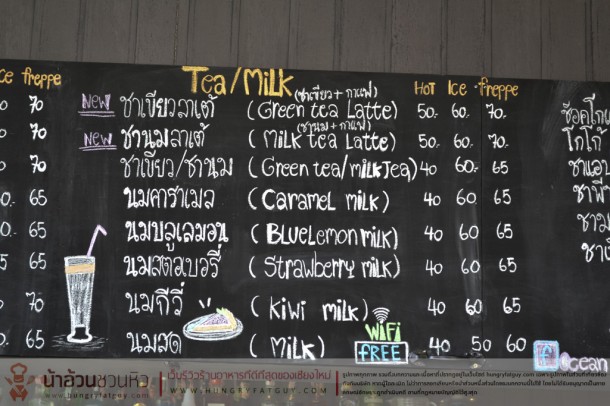 Tea/Milk HOT Ice freppe
(ชาเขียว+กาแฟ)
New ชาเขียวลาเต้ (Green tea Latte) 50.- 60.- 70.-
(ชานม+กาแฟ)
New ชานมลาเต้ (Milk tea Latte) 50.- 60.- 70.-
ชาเขียว/ชานม (Green tea/milk Tea) 40 60.- 70.-
นมคาราเมล (Caramel milk) 40 60. 65
นมบลูเลมอน (BLUELemon milk) 40 60. 65
นมสตอเบอรี่ (Strawberry milk) 40 60 65
นมกีวี่ (Kiwi milk) 40 60 65
นมสด (Milk) 40 50 60
WiFi
FREE
freppe
70
70
70
65
65
65
70
65
โกโก้
f ocean
น้าอ้วนชวนหิว
www.hungryfatguy.com
เว็บรีวิวร้านอาหารที่ดีที่สุดของเชียงใหม่
WWW.HUNGRYFATGUY.COM